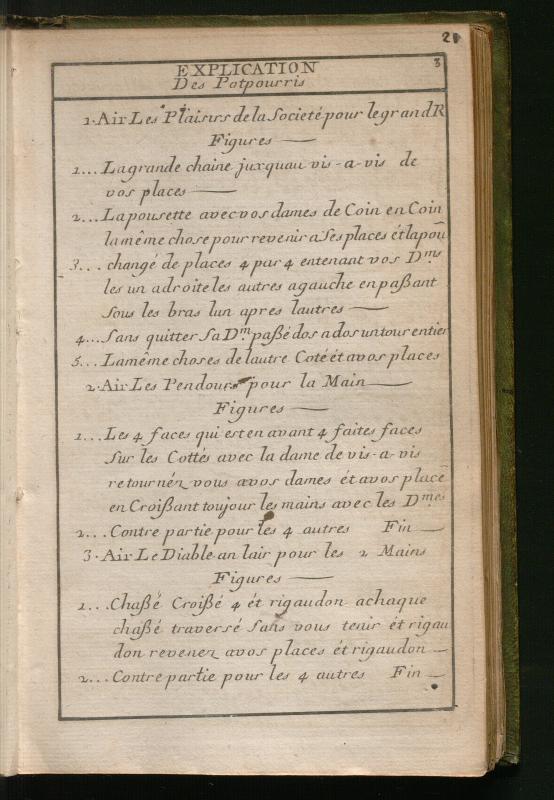 21
3
EXPLICATION
Des Potpourris
1. Air Les Plaisirs de la Societé pour le grand R
Figures —
1... La grande chaine juxquau vis-a-vis de
vos places —
2... La pousette avec vos dames de Coin en Coin
la même chose pour revenir a Ses places ét la pou
3... changé de places 4 par 4 entenant vos D.mes
les un adroite les autres agauche en paßant
Sous les bras lun apres lautres —
4... Sans quitter Sa D.m paßé dos ados un tour entier
5... La même choses de lautre Coté ét avos places
2. Air Les Pendours pour la Main —
Figures —
1... Les 4 faces qui est en avant 4 faites faces
Sur les Cottés avec la dame de vis-a-vis
retournéz vous avos dames ét avos place
en Croißant toujour les mains avec les D.mes
2... Contre partie pour les 4 autres Fin —
3. Air Le Diable an lair pour les 2 Mains
Figures —
1... Chaßé Croißé 4 ét rigaudon achaque
chaßé traversé Sans vous tenir ét rigau
don revenez avos places ét rigaudon —
2... Contre partie pour les 4 autres Fin —